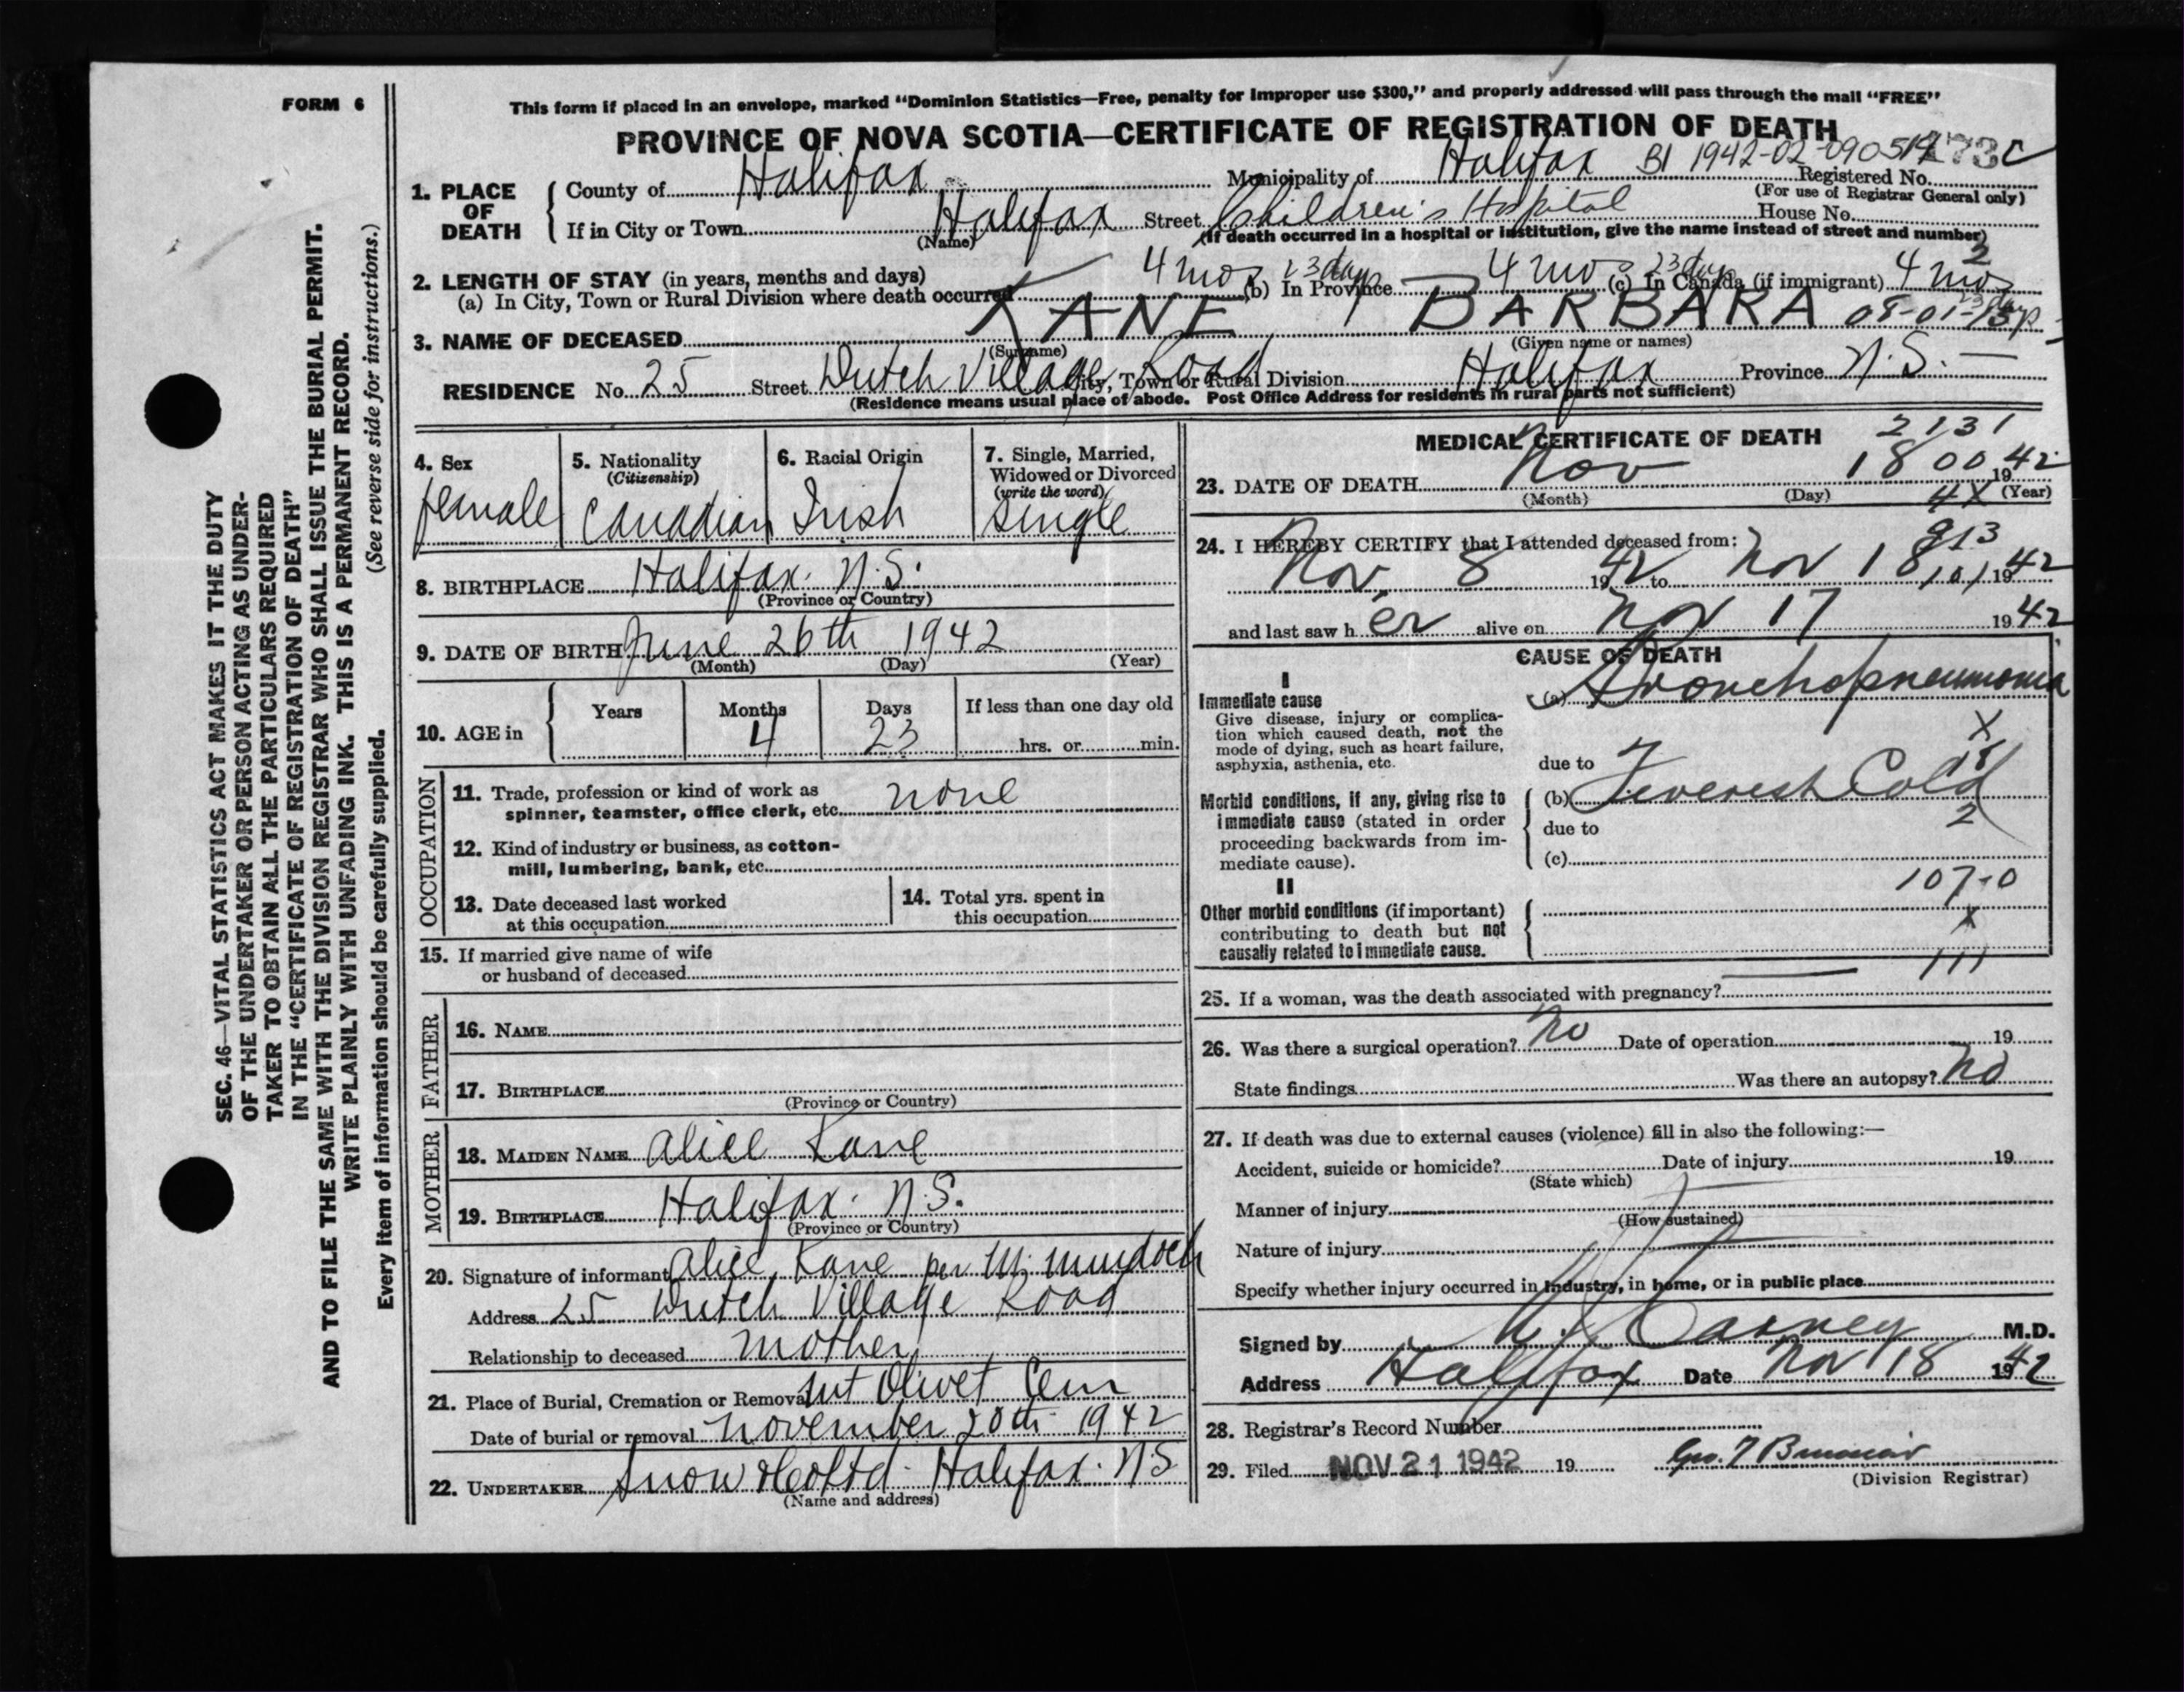 FORM 6
This form if placed in an envelope, marked "Dominion Statistics—Free, penalty for improper use $300," and properly addressed will pass through the mail "FREE"
PROVINCE OF NOVA SCOTIA—CERTIFICATE OF REGISTRATION OF DEATH
BI 1942-02-090519
1. PLACE OF DEATH
County of Halifax Municipality of Halifax Registered No.
(For use of Registrar General only)
If in City or Town Halifax Street Children's Hospital House No.
(Name) (If death occurred in a hospital or institution, give the name instead of street and number)
2. LENGTH OF STAY (in years, months and days)
(a) In City, Town or Rural Division where death occurred 4 mos 23 days (b) In Province 4 mos 23 days (c) In Canada (if immigrant) 4 mos 23 days
3. NAME OF DECEASED KANE, BARBARA
(Surname) (Given name or names)
RESIDENCE No. 25 Street Dutch Village Road City, Town or Rural Division Halifax Province N.S.
(Residence means usual place of abode. Post Office Address for residents in rural parts not sufficient)
4. Sex female
5. Nationality (Citizenship) Canadian
6. Racial Origin Irish
7. Single, Married, Widowed or Divorced (write the word) Single
8. BIRTHPLACE Halifax. N.S.
(Province or Country)
9. DATE OF BIRTH June 26th 1942
(Month) (Day) (Year)
10. AGE in Years Months 4 Days 23 If less than one day old hrs. or min.
OCCUPATION
11. Trade, profession or kind of work as spinner, teamster, office clerk, etc. none
12. Kind of industry or business, as cotton-mill, lumbering, bank, etc.
13. Date deceased last worked at this occupation
14. Total yrs. spent in this occupation
15. If married give name of wife or husband of deceased
FATHER
16. NAME
17. BIRTHPLACE
(Province or Country)
MOTHER
18. MAIDEN NAME Alice Kane
19. BIRTHPLACE Halifax. N.S.
(Province or Country)
20. Signature of informant Alice Kane per M. Murdock
Address 25 Dutch Village Road
Relationship to deceased mother
21. Place of Burial, Cremation or Removal Mt Olivet Cem
Date of burial or removal November 20th 1942
22. UNDERTAKER Snow & Co Ltd. Halifax. N.S
(Name and address)
MEDICAL CERTIFICATE OF DEATH
2131
23. DATE OF DEATH Nov 18 00 1942
(Month) (Day) (Year)
4X
913
24. I HEREBY CERTIFY that I attended deceased from:
Nov 8 1942 to Nov 18 1942
101
and last saw her alive on Nov 17 1942
CAUSE OF DEATH
I
Immediate cause
Give disease, injury or complication which caused death, not the mode of dying, such as heart failure, asphyxia, asthenia, etc.
(a) Bronchopneumonia
X
due to
Morbid conditions, if any, giving rise to immediate cause (stated in order proceeding backwards from immediate cause).
(b) Feverish Cold
due to
2
(c)
107-0
II
Other morbid conditions (if important) contributing to death but not causally related to immediate cause.
X
111
25. If a woman, was the death associated with pregnancy? —
26. Was there a surgical operation? No Date of operation 19
State findings Was there an autopsy? No
27. If death was due to external causes (violence) fill in also the following:—
Accident, suicide or homicide? Date of injury 19
(State which)
Manner of injury
(How sustained)
Nature of injury
Specify whether injury occurred in industry, in home, or in public place
Signed by M.D.
Address Halifax Date Nov 18 1942
28. Registrar's Record Number
29. Filed NOV 21 1942 19
(Division Registrar)
SEC. 46—VITAL STATISTICS ACT MAKES IT THE DUTY
OF THE UNDERTAKER OR PERSON ACTING AS UNDER-
TAKER TO OBTAIN ALL THE PARTICULARS REQUIRED
IN THE "CERTIFICATE OF REGISTRATION OF DEATH"
AND TO FILE THE SAME WITH THE DIVISION REGISTRAR WHO SHALL ISSUE THE BURIAL PERMIT.
WRITE PLAINLY WITH UNFADING INK. THIS IS A PERMANENT RECORD.
Every item of information should be carefully supplied. (See reverse side for instructions.)